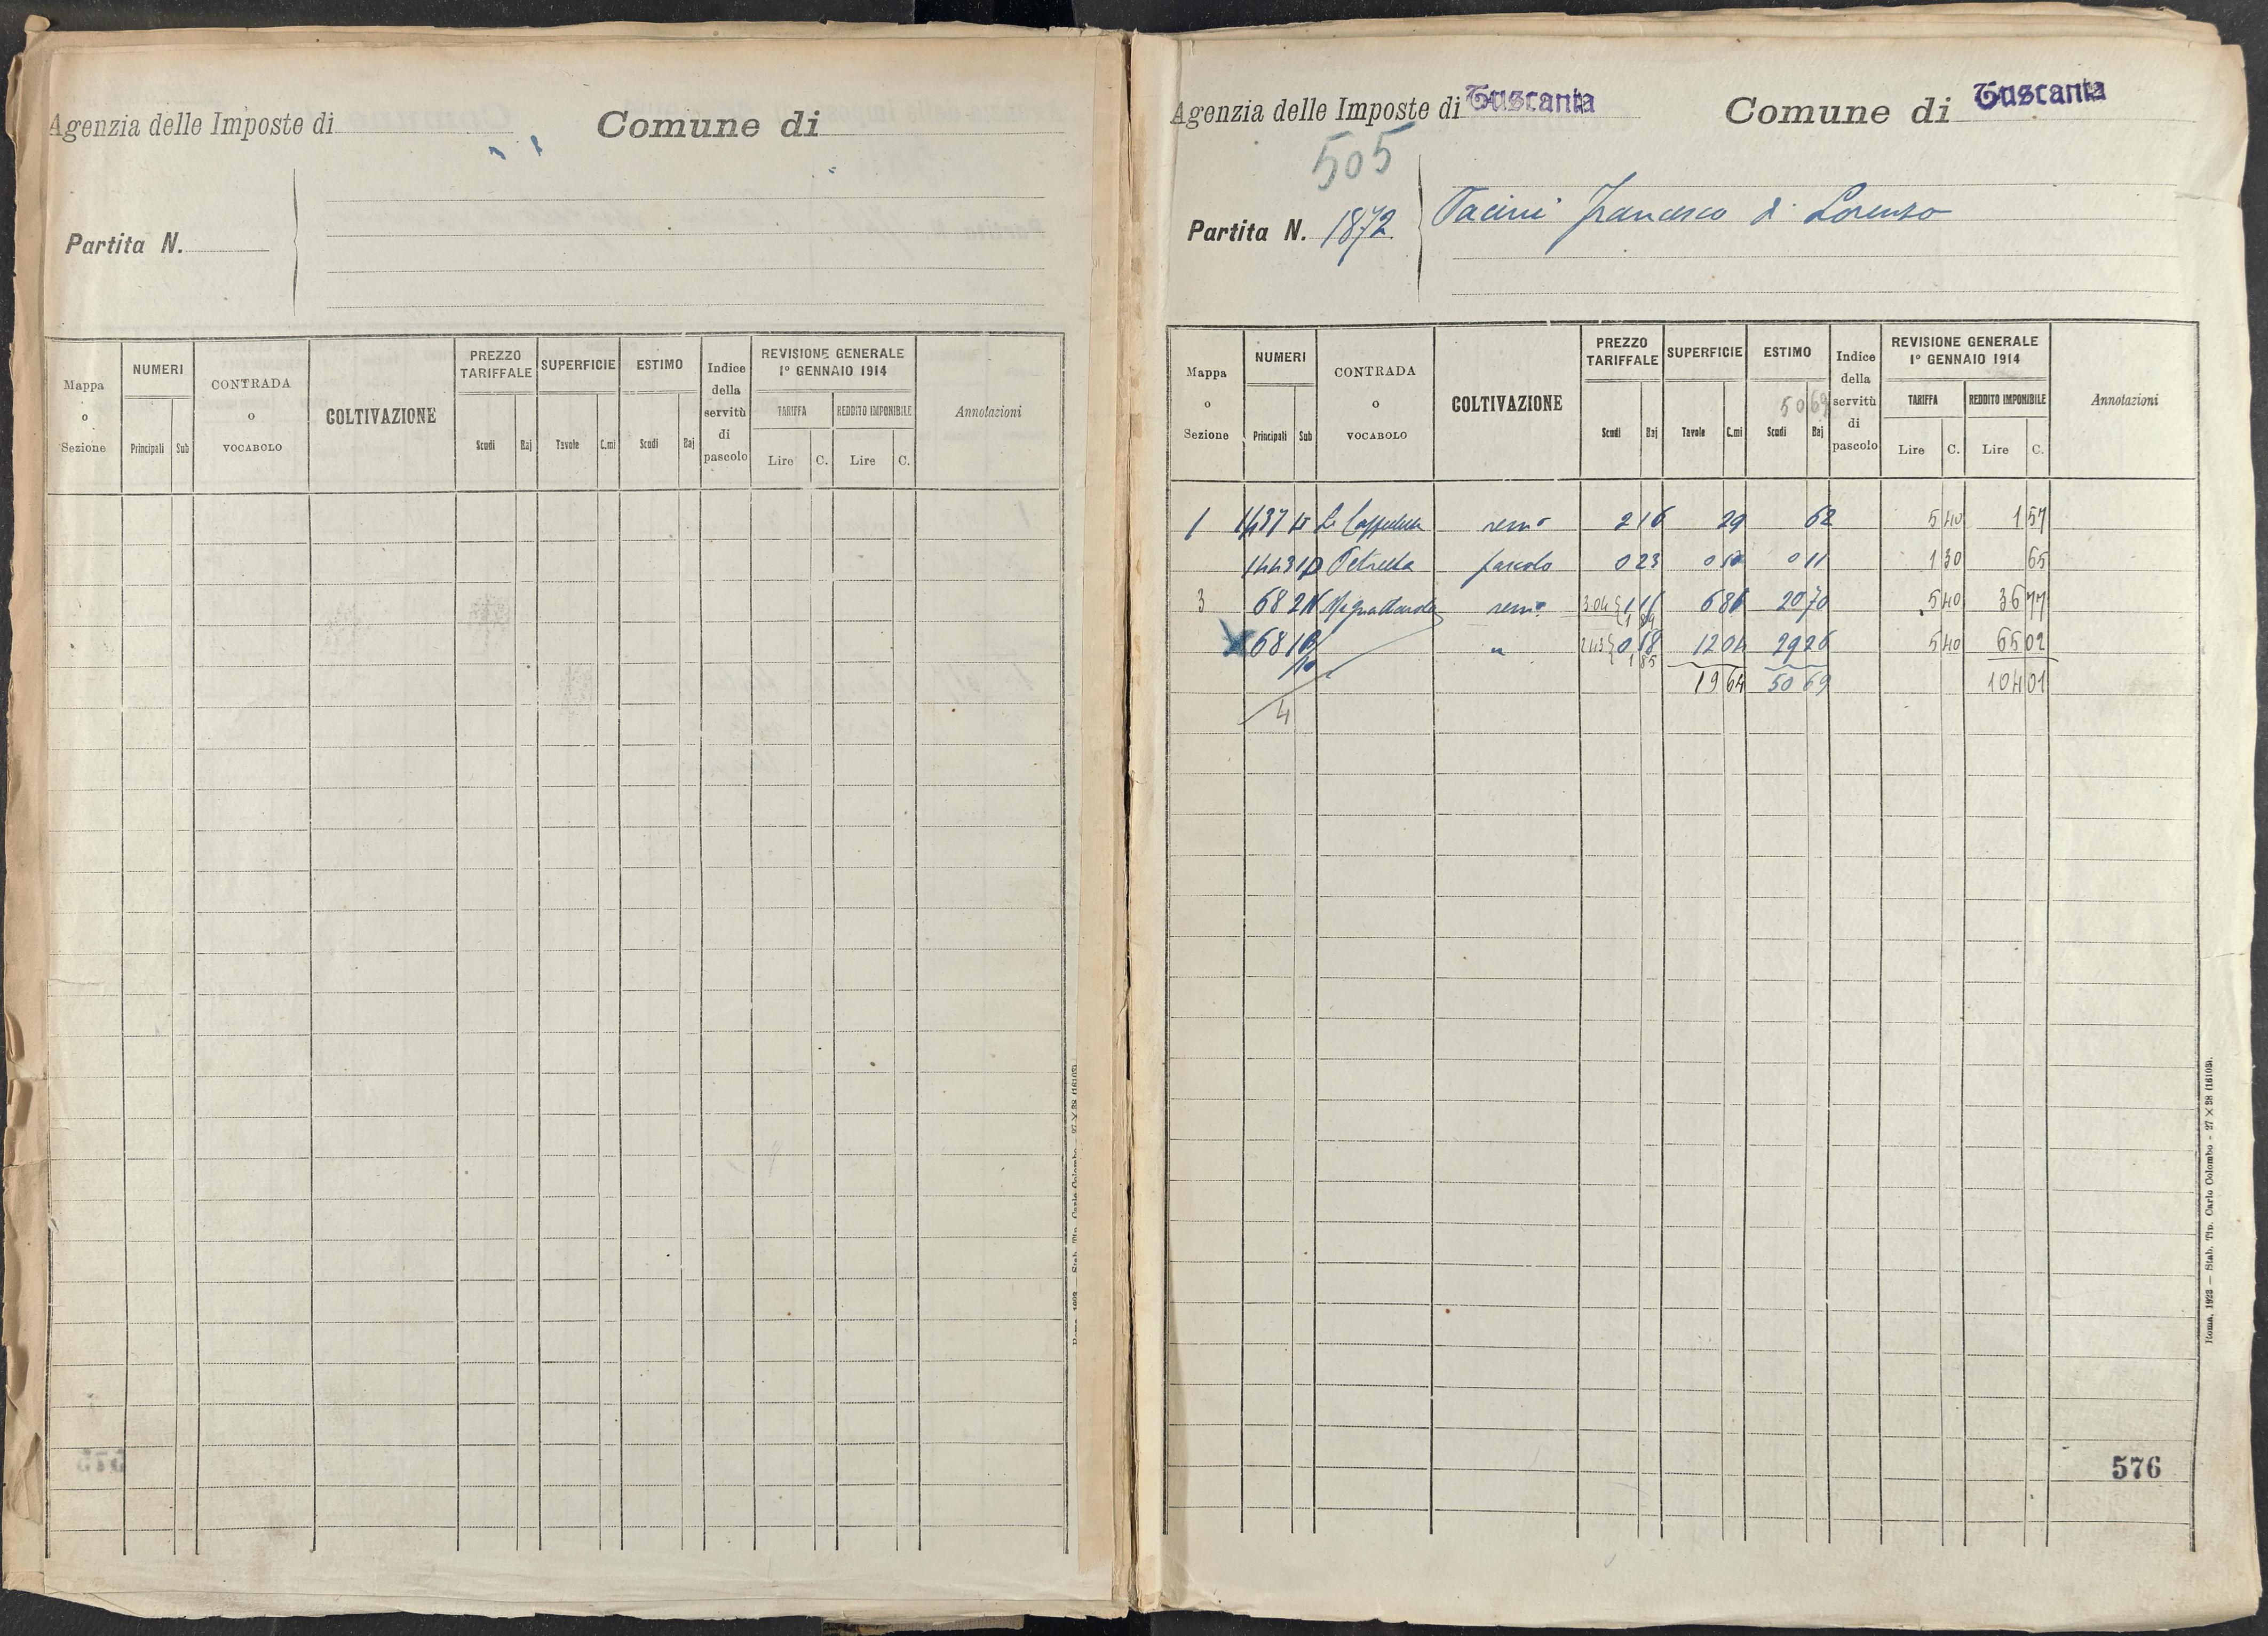 Agenzia delle Imposte di
Comune di
Partita N.
Mappa o Sezione
NUMERI
Principali Sub
CONTRADA o VOCABOLO
COLTIVAZIONE
PREZZO TARIFFALE
Scudi Baj
SUPERFICIE
Tavole C.mi
ESTIMO
Scudi Baj
Indice della servitù di pascolo
REVISIONE GENERALE
1° GENNAIO 1914
TARIFFA
Lire C.
REDDITO IMPONIBILE
Lire C.
Annotazioni
Agenzia delle Imposte di Tuscania
Comune di Tuscania
505
Partita N. 1872
Pacini Francesco di Lorenzo
Mappa o Sezione
NUMERI
Principali Sub
CONTRADA o VOCABOLO
COLTIVAZIONE
PREZZO TARIFFALE
Scudi Baj
SUPERFICIE
Tavole C.mi
ESTIMO
50 69
Scudi Baj
Indice della servitù di pascolo
REVISIONE GENERALE
1° GENNAIO 1914
TARIFFA
Lire C.
REDDITO IMPONIBILE
Lire C.
Annotazioni
1 1437 sem° 2 16 29 62 5 40 1 57
1443 Petrella pascolo 0 23 0 50 0 11 1 30 65
3 682 sem° 3 04 1 16 6 86 20 70 5 40 36 77
681 " 2 43 0 58 12 04 29 26 5 40 65 02
1 85
19 64 50 69 104 01
4
576
Roma, 1923 — Stab. Tip. Carlo Colombo - 27 × 38 (16103).